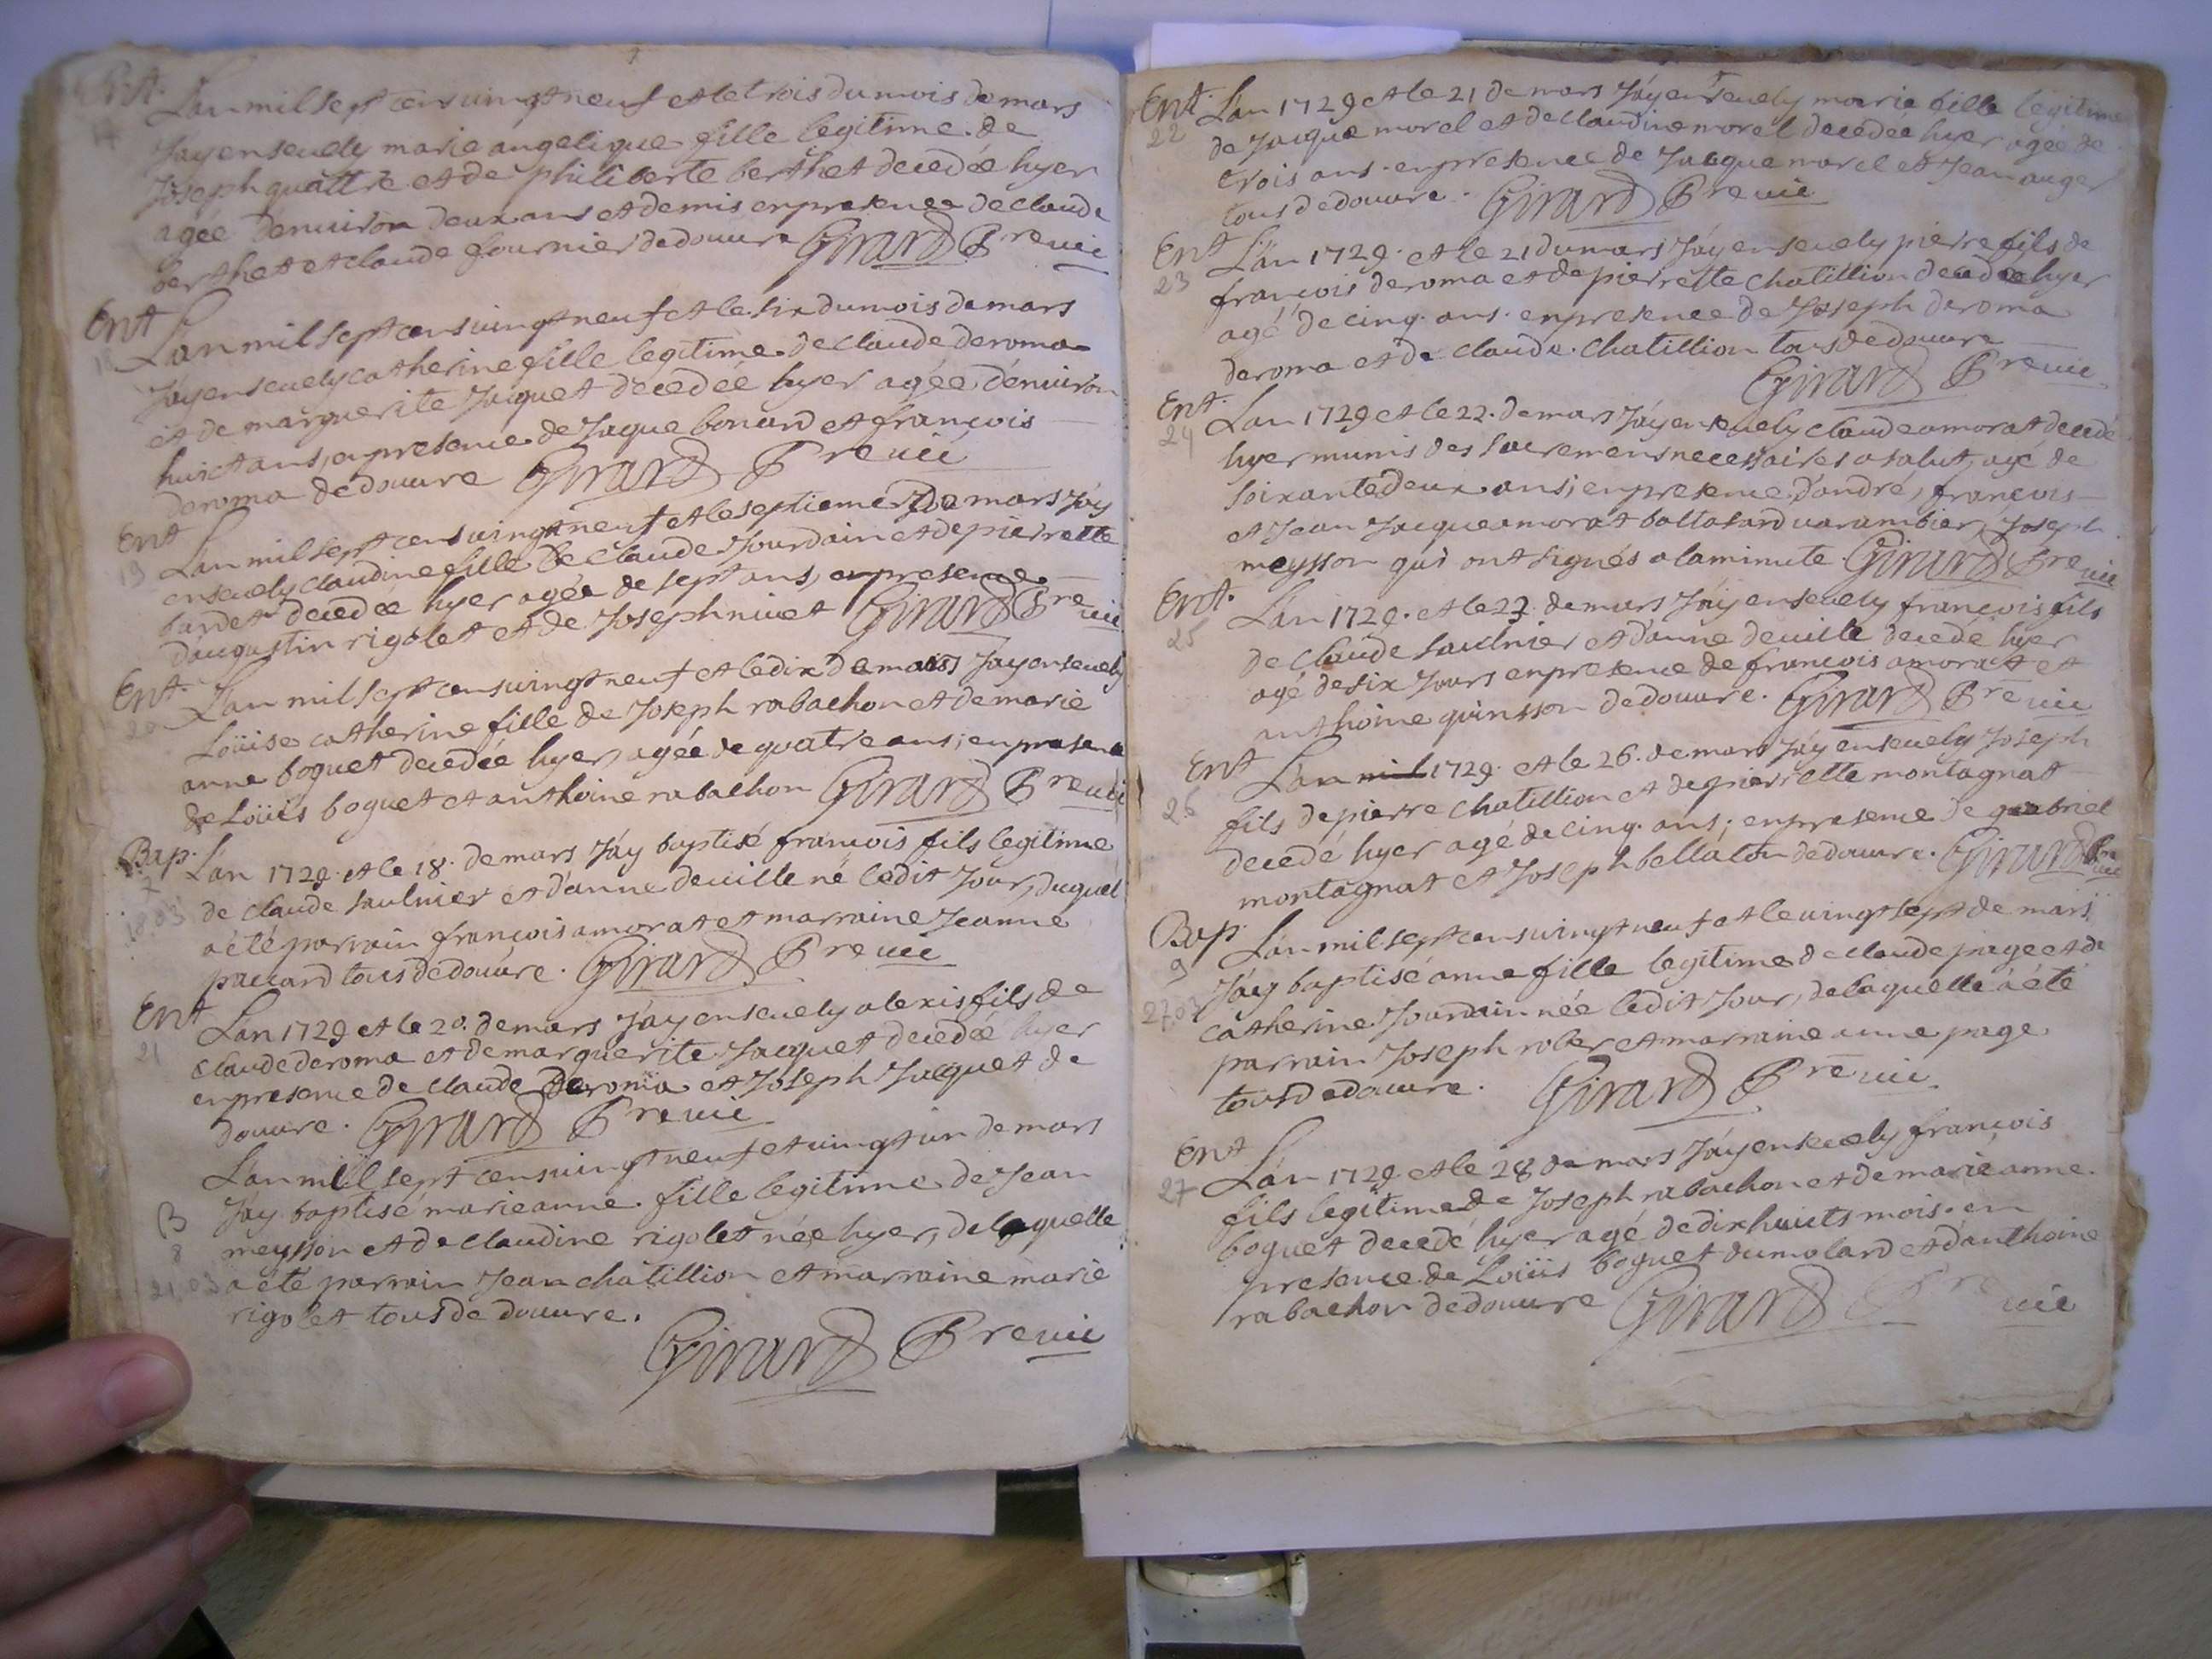 Ent.
Lan mil sept cens vingt neuf et le trois du mois de mars
Jay ensevely marie angelique fille legitime de
Joseph quattre et de philiberte berthet decedée hyer
agée denuiron deux ans et demis en presence de claude
berthet et claude fournier de douure Girard Pre vic
Ent
18
Lan mil sept cens vingt neuf et le six du mois de mars
Jay ensevely catherine fille legitime de claude deroma
et de marguerite Jaquet decedée hyer agée denuiron
huict ans, en presence de Jaque bonard et françois
deroma de douure Girard Pre vic
Ent
19
Lan mil sept cens vingt neuf et le septieme de mars Jay
ensevely claudine fille de claude Jourdain et de pierrette
bardet decedée hyer agée de sept ans, en presence
daugustin rigolet et de Joseph nivet Girard Pre vic
Ent.
20
Lan mil sept cens vingt neuf et le dix de mars Jay ensevely
Loüise catherine fille de Joseph rabachon et de marie
anne boguet decedée hyer, agée de quatre ans; en presence
de Loüis boguet et anthoine rabachon Girard Pre vic
Bap.
7
18.03
Lan 1729. et le 18. de mars Jáy baptisé françois fils legitime
de claude saulnier et d'anne deuille né ledit Jour, duquel
a été parrain françois amorat et marraine Jeanne
paccard tous de douure. Girard Pre vic
Ent
21
Lan 1729 et le 20. de mars Jáy ensevely alexis fils de
claude deroma et de marguerite Jacquet decedée hyer
en presence de claude deroma et Joseph Jacquet de
douure. Girard Pre vic
B
8
21.03
Lan mil sept cens vingt neuf et vingt un de mars
Jáy baptisé marieanne fille legitime de Jean
meysson et de claudine rigolet née hyer, de laquelle
a été parrain Jean châtillion et marraine marie
rigolet tous de douure.
Girard Pre vic
Ent.
22
Lan 1729 et le 21 de mars Jáy ensevely marie fille legitime
de Jacque morel et de claudine morel decedée hyer agée de
trois ans. en presence de Jacque morel et Jean auger
tous de douure. Girard Pre vic
Ent
23
Lan 1729. et le 21 du mars Jáy ensevely pierre fils de
françois deroma et de pierrette chatillion decedee hyer
agé de cinq. ans. en presence de Joseph deroma
deroma et de claude. chatillion tous de douure
Girard Pre vic.
Ent.
24
Lan 1729 et le 22. de mars Jáy ensevely claude amorat decedé
hyer munis des sacremens necessaires a salut, agé de
soixante deux ans; en presence d'andré, françois
et Jean Jacque amorat baltasard varambier, Joseph
meysson qui ont signés a la minute. Girard Pre vic
Ent.
25
Lan 1729. et le 23. de mars Jáy ensevely françois fils
de claude saulnier et d'anne deuille decedé hyer
agé de six Jours en presence de françois amorat et
anthoine quinsson de douure. Girard Pre vic
Ent
26
Lan mil 1729. et le 26. de mars Jáy ensevely Joseph
fils de pierre chatillion et de pierrette montagnat
decedé hyer agé de cinq. ans; en presence de gabriel
montagnat et Joseph bellaton de douure. Girard Pre vic
Bap.
9
27.03
Lan mil sept cens vingt neuf et le vingt sept de mars
Jáy baptisé anne fille legitime de claude page et de
catherine Jourdain née ledit Jour, de laquelle á été
parrain Joseph robes et marraine anne page
tous de douure. Girard Pre vic
Ent
27
Lan 1729 et le 28 de mars Jáy ensevely françois
fils legitime de Joseph rabachon et de marie anne
boguet decedé hyer agé de dix huicts mois. en
presence de Loüis boguet du molard et d'anthoine
rabachon de douure Girard Pre vic